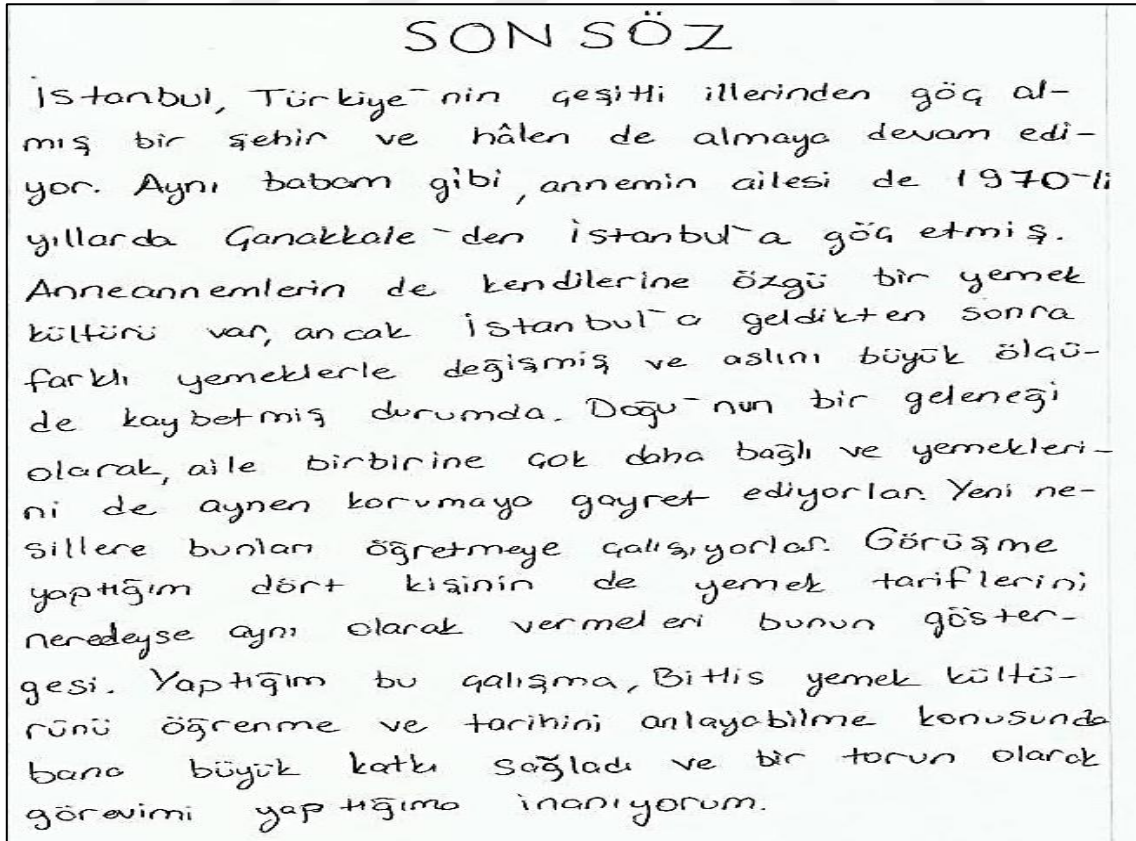 SON SÖZ
İstanbul, Türkiye'nin çeşitli illerinden göç al-
mış bir şehir ve hâlen de almaya devam edi-
yor. Aynı babam gibi, annemin ailesi de 1970'li
yıllarda Çanakkale'den İstanbul'a göç etmiş.
Anneannemlerin de kendilerine özgü bir yemek
kültürü var, ancak İstanbul'a geldikten sonra
farklı yemeklerle değişmiş ve aslını büyük ölçü-
de kaybetmiş durumda. Doğu'nun bir geleneği
olarak, aile birbirine çok daha bağlı ve yemekleri-
ni de aynen korumaya gayret ediyorlar. Yeni ne-
sillere bunları öğretmeye çalışıyorlar. Görüşme
yaptığım dört kişinin de yemek tariflerini
neredeyse aynı olarak vermeleri bunun göster-
gesi. Yaptığım bu çalışma, Bitlis yemek kültü-
rünü öğrenme ve tarihini anlayabilme konusunda
bana büyük katkı sağladı ve bir torun olarak
görevimi yaptığıma inanıyorum.